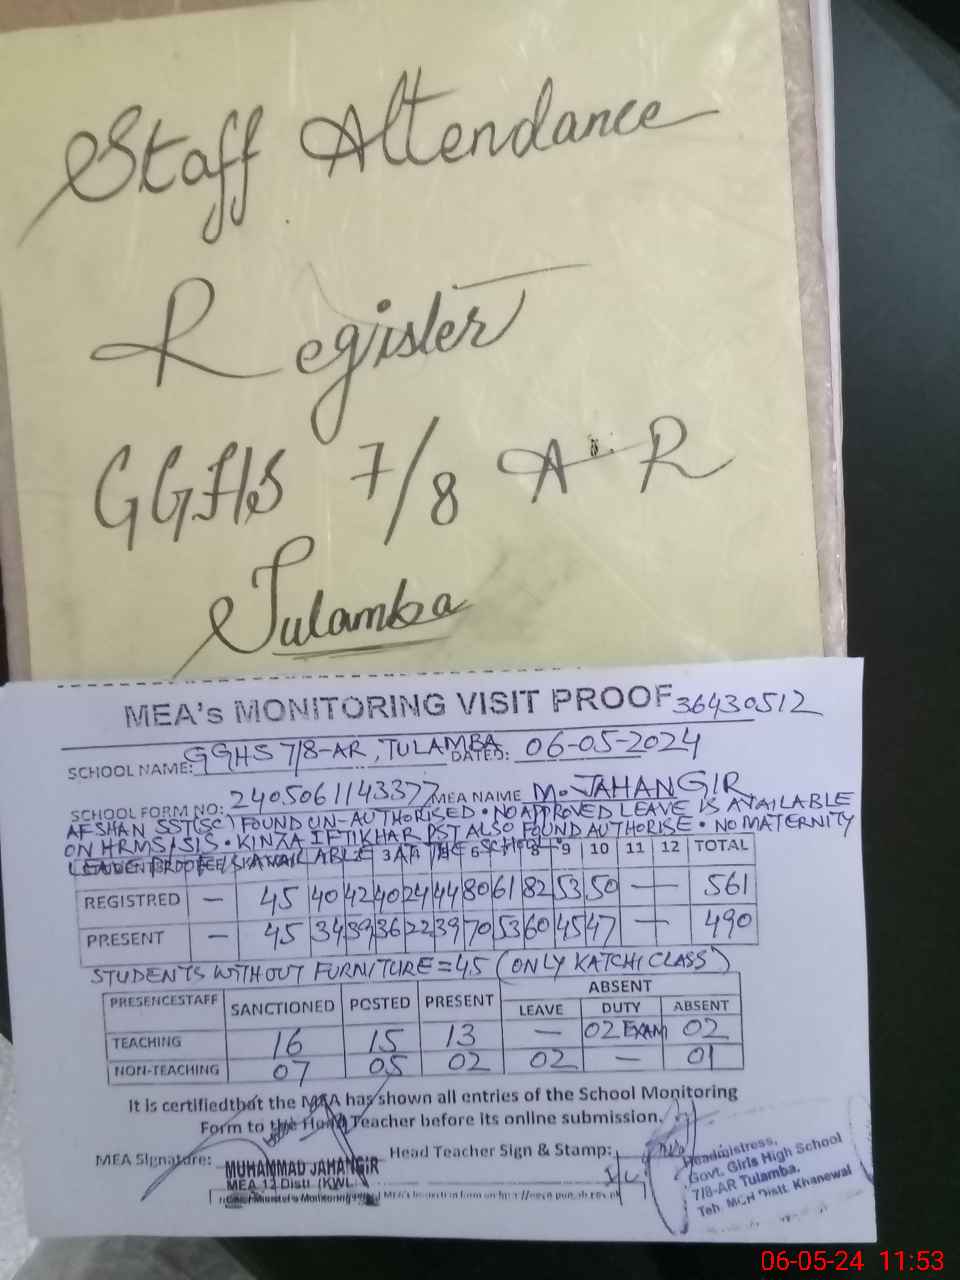 Staff Attendance
Register
GGHS 7/8 A.R
Tulamba
MEA's MONITORING VISIT PROOF 36430512
SCHOOL NAME: GGHS 7/8-AR, TULAMBA DATED: 06-05-2024
SCHOOL FORM NO: 2405061143377 MEA NAME M. JAHANGIR
AFSHAN SST(SC) FOUND UN-AUTHORISED. NO APPROVED LEAVE IS AVAILABLE
ON HRMS/SIS. KINZA IFTIKHAR PST ALSO FOUND AUTHORISE. NO MATERNITY
LEAVE PROOF IS AVAILABLE AT THE SCHOOL
3 6 8 9 10 11 12 TOTAL
REGISTRED — 45 40 42 40 24 44 80 61 82 53 50 — 561
PRESENT — 45 34 39 36 22 39 70 53 60 45 47 — 490
STUDENTS WITHOUT FURNITURE = 45 (ONLY KATCHI CLASS)
PRESENCESTAFF SANCTIONED POSTED PRESENT ABSENT
LEAVE DUTY ABSENT
TEACHING 16 15 13 — 02 EXAM 02
NON-TEACHING 07 05 02 02 — 01
It is certifiedthat the MEA has shown all entries of the School Monitoring
Form to the Head Teacher before its online submission.
MEA Signature: Head Teacher Sign & Stamp:
MUHAMMAD JAHANGIR
MEA 12 Distt. (KWL
Headmistress,
Govt. Girls High School
7/8-AR Tulamba.
Teh. MCH Distt. Khanewal
06-05-24 11:53